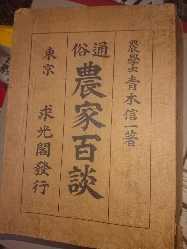 農學士 青木信一著
通俗
農家百談
東京 求光閣發行